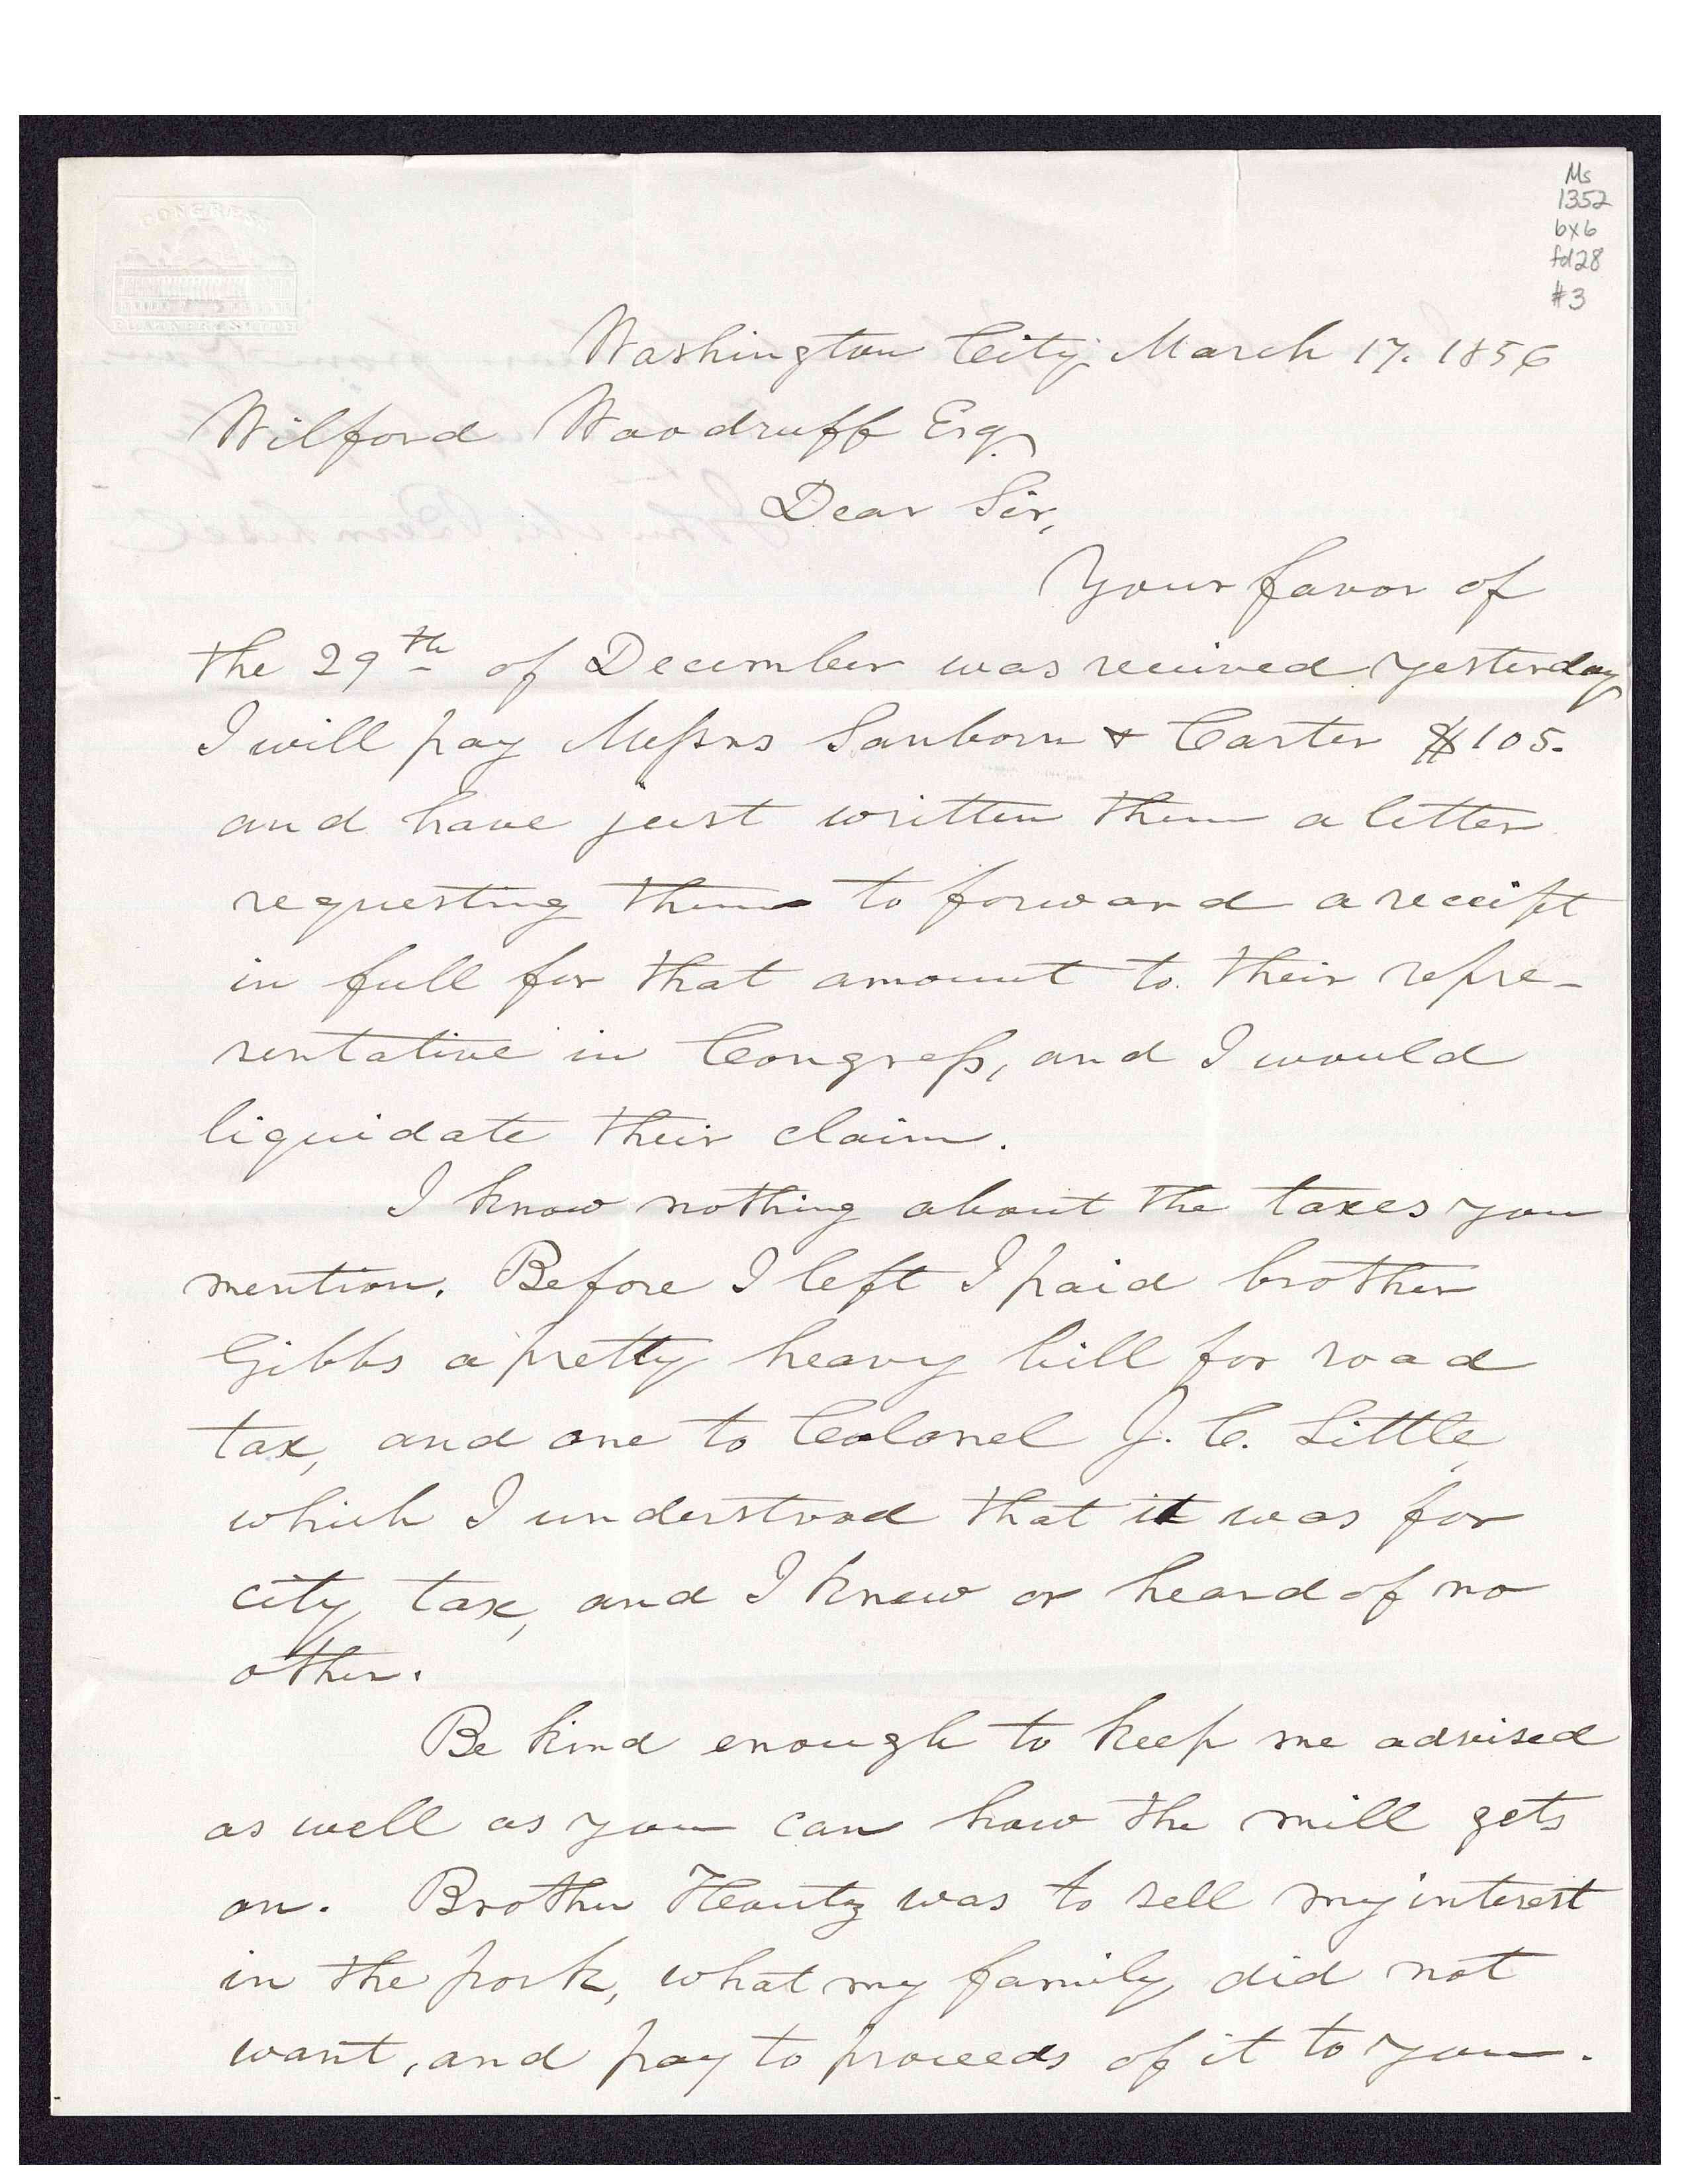 Ms
1352
bx6
fd28
#3
CONGRESS
Washington City, March 17. 1856
Wilford Woodruff Esq.
Dear Sir,
Your favor of
the 29th of December was received yesterday
I will pay Messrs Sanborn & Carter $105.
and have just written them a letter
requesting them to forward a receipt
in full for that amount to their repre-
sentative in Congress, and I would
liquidate their claim.
I know nothing about the taxes you
mention. Before I left I paid brother
Gibbs a pretty heavy bill for road
tax, and one to Colonel J. C. Little,
which I understood that it was for
city tax, and I knew or heard of no
other.
Be kind enough to keep me advised
as well as you can how the mill gets
on. Brother Heautz was to sell my interest
in the pork, what my family did not
want, and pay to proceeds of it to you.